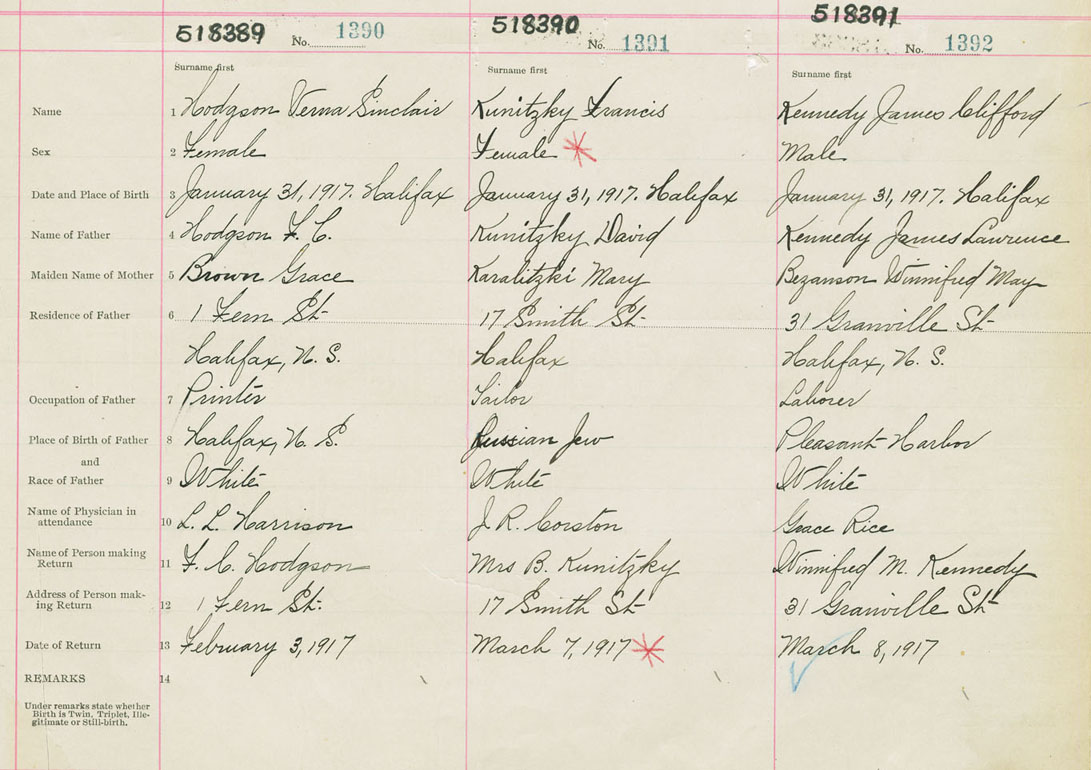 518389 No. 1390 518390 No. 1391 518391 No. 1392
Surname first Surname first Surname first
Name 1 Hodgson Verna Sinclair Kunitzky Francis Kennedy James Clifford
Sex 2 Female Female Male
Date and Place of Birth 3 January 31, 1917. Halifax January 31, 1917. Halifax January 31, 1917. Halifax
Name of Father 4 Hodgson F. C. Kunitzky David Kennedy James Lawrence
Maiden Name of Mother 5 Brown Grace Karalitzki Mary Bezanson Winnifred May
Residence of Father 6 1 Fern St. 17 Smith St. 31 Granville St
Halifax, N. S. Halifax Halifax, N. S.
Occupation of Father 7 Printer Tailor Laborer
Place of Birth of Father 8 Halifax, N. S. Russian Jew Pleasant Harbor
and
Race of Father 9 White White White
Name of Physician in
attendance 10 L. L. Harrison J. R. Corston Grace Rice
Name of Person making
Return 11 F. C. Hodgson Mrs B. Kunitzky Winnifred M. Kennedy
Address of Person mak-
ing Return 12 1 Fern St. 17 Smith St 31 Granville St
Date of Return 13 February 3, 1917 March 7, 1917 March 8, 1917
REMARKS 14
Under remarks state whether
Birth is Twin, Triplet, Ille-
gitimate or Still-birth.